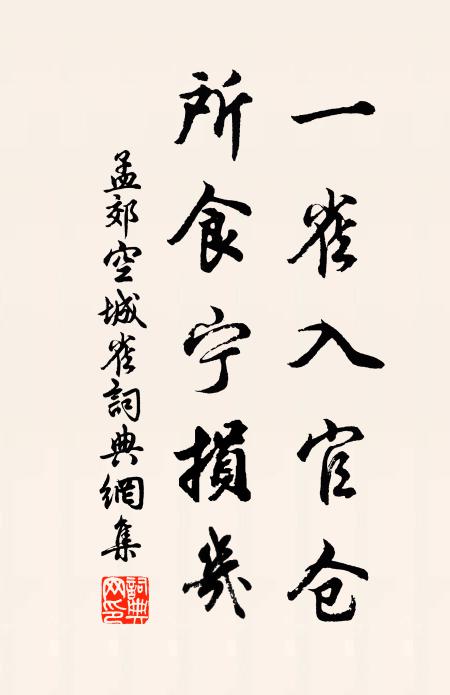 一雀入官仓
所食宁損幾
孟郊空城雀詞典網集
詞典